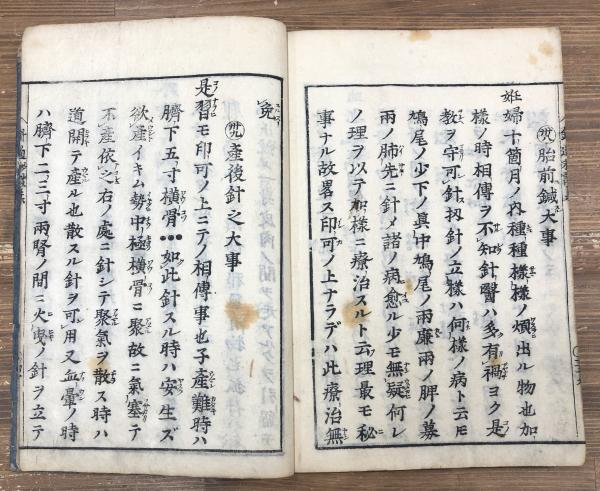 胎前鍼大事
妊婦十箇月ノ內種種樣樣ノ煩出ル物也加
樣ノ時相傳ヲ不知針醫ハ多有禍ヨク是
敎ヲ守可針扨針ノ立樣ハ何樣ノ病ト云𪜈
鳩尾ノ少下ノ眞中鳩尾ノ兩廉兩ノ脾ノ募
兩ノ肺先ニ針〆諸ノ病愈ル少モ無疑何レ
ノ理ヲ以テノ加樣ニ療治スルト云理最モ秘
事ナル故畧ス印可ノ上ナラデハ此療治無
免
產後針之大事
是習モ印可ノ上ニテノ相傳事也子產難時ハ
臍下五寸橫骨●●●如此針スル時ハ安生ズ
欲產イキム勢中極橫骨ニ聚故ニ氣塞テ
不產依之右ノ處ニ針シテ聚氣ヲ散ス時ハ
道開テ產ル也散スル針ヲ可用又血暈ノ時
ハ臍下二三寸兩腎ノ間ニ火曳ノ針ヲ立テ